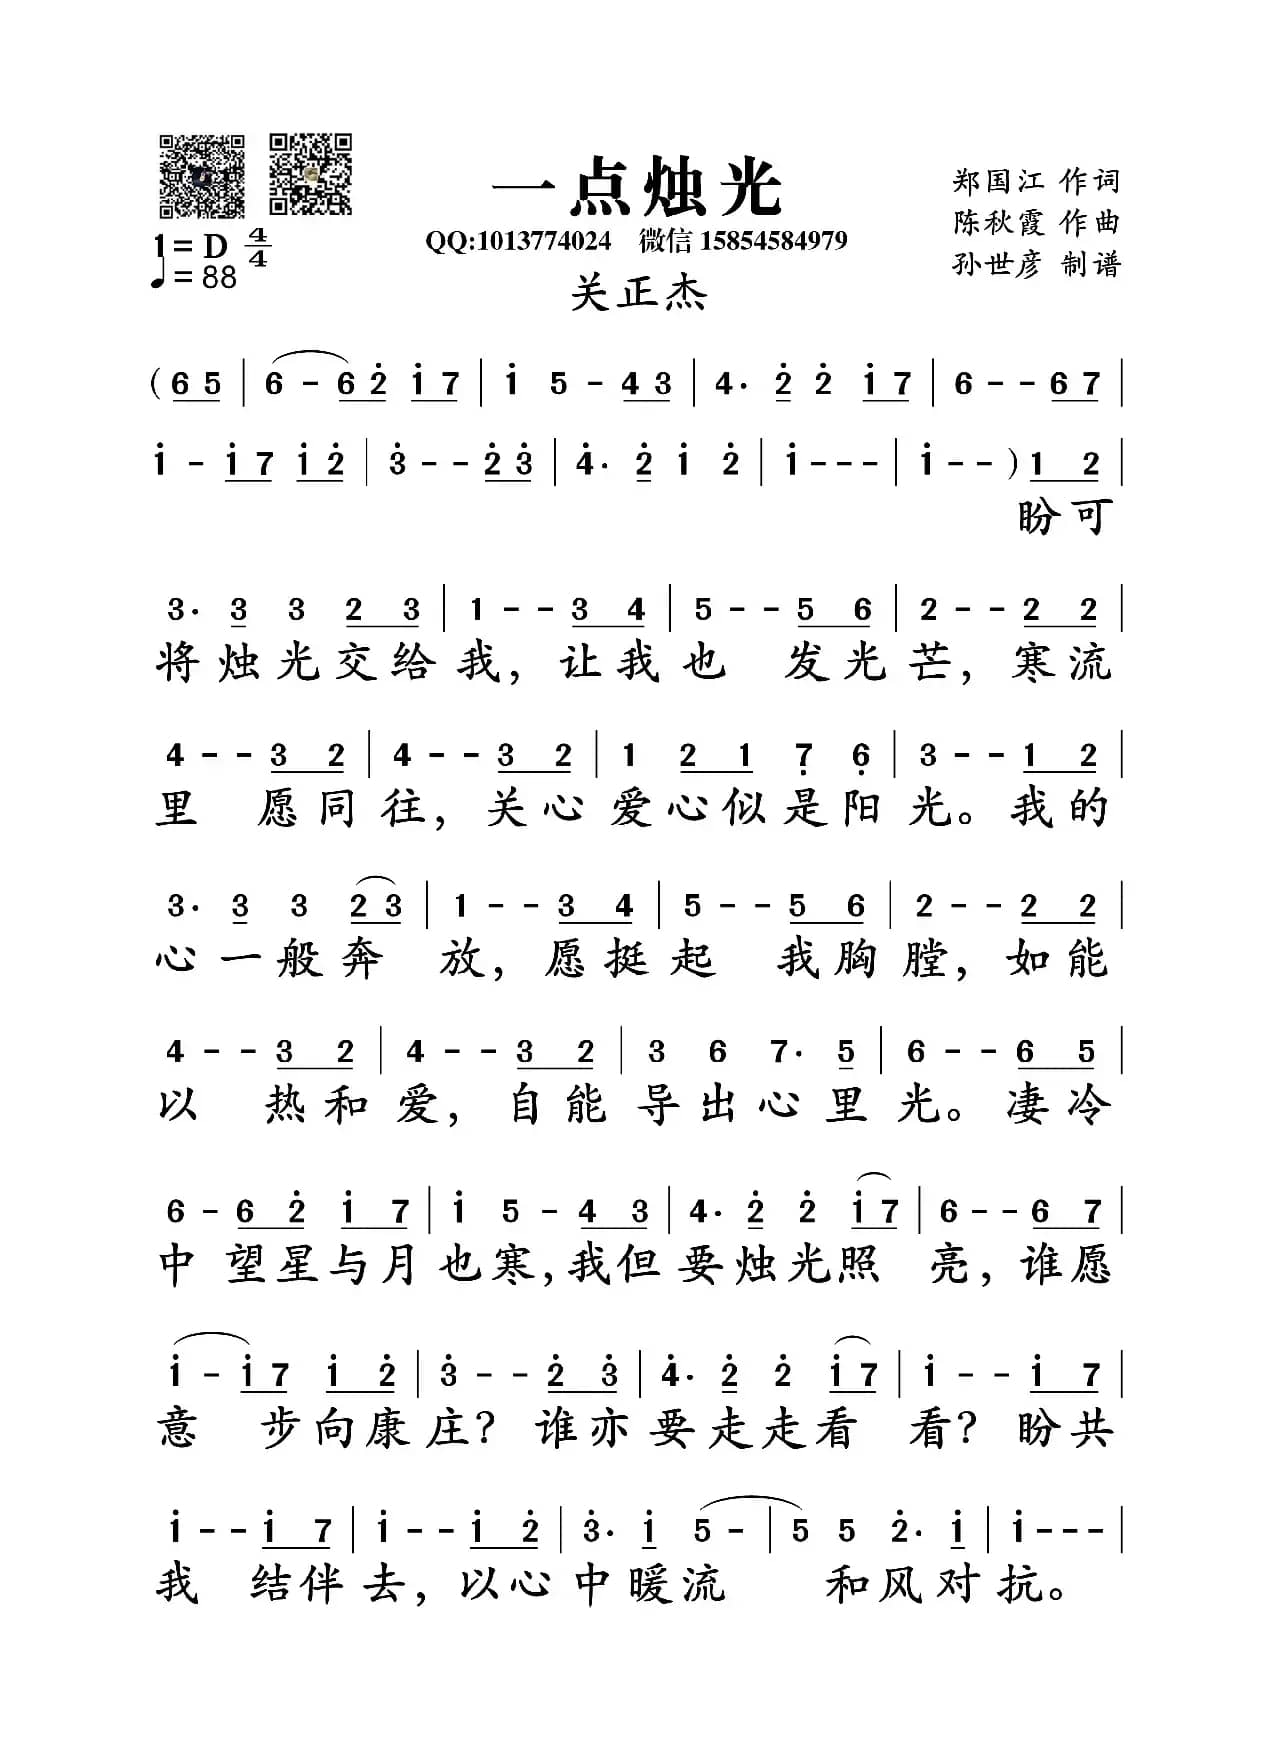 一点烛光
郑国江 作词
陈秋霞 作曲
孙世彦 制谱
QQ:1013774024 微信 15854584979
关正杰
1=D 4/4
♩=88
(6 5 | 6 - 6 2̇ 1̇ 7 | 1̇ 5 - 4 3 | 4. 2̇ 2̇ 1̇ 7 | 6 - - 6 7 |
1̇ - 1̇ 7 1̇ 2̇ | 3̇ - - 2̇ 3̇ | 4̇. 2̇ 1̇ 2̇ | 1̇ - - - | 1̇ - - ) 1 2 |
盼可
3. 3 3 2 3 | 1 - - 3 4 | 5 - - 5 6 | 2 - - 2 2 |
将烛光交给我，让我也 发光芒，寒流
4 - - 3 2 | 4 - - 3 2 | 1 2 1 7̣ 6̣ | 3 - - 1 2 |
里 愿同往，关心爱心似是阳光。我的
3. 3 3 2 3 | 1 - - 3 4 | 5 - - 5 6 | 2 - - 2 2 |
心一般奔 放，愿挺起 我胸膛，如能
4 - - 3 2 | 4 - - 3 2 | 3 6 7. 5 | 6 - - 6 5 |
以 热和爱，自能导出心里光。凄冷
6 - 6 2̇ 1̇ 7 | 1̇ 5 - 4 3 | 4. 2̇ 2̇ 1̇ 7 | 6 - - 6 7 |
中 望星与月也寒，我但要烛光照 亮，谁愿
1̇ - 1̇ 7 1̇ 2̇ | 3̇ - - 2̇ 3̇ | 4̇. 2̇ 2̇ 1̇ 7 | 1̇ - - 1̇ 7 |
意 步向康庄？谁亦要走走看 看？盼共
1̇ - - 1̇ 7 | 1̇ - - 1̇ 2̇ | 3̇. 1̇ 5 - | 5 5 2̇. 1̇ | 1̇ - - - |
我 结伴去，以心中暖流 和风对抗。